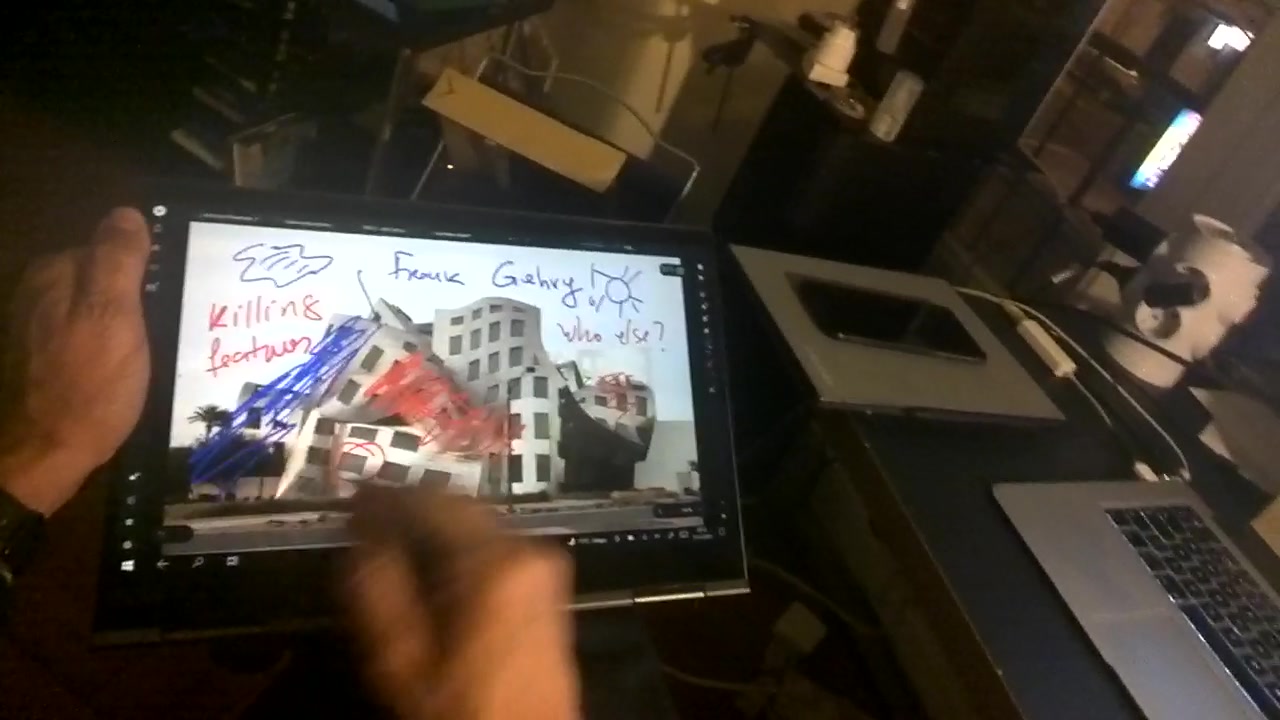 Frank Gehry
Killing
features
w/
who else?